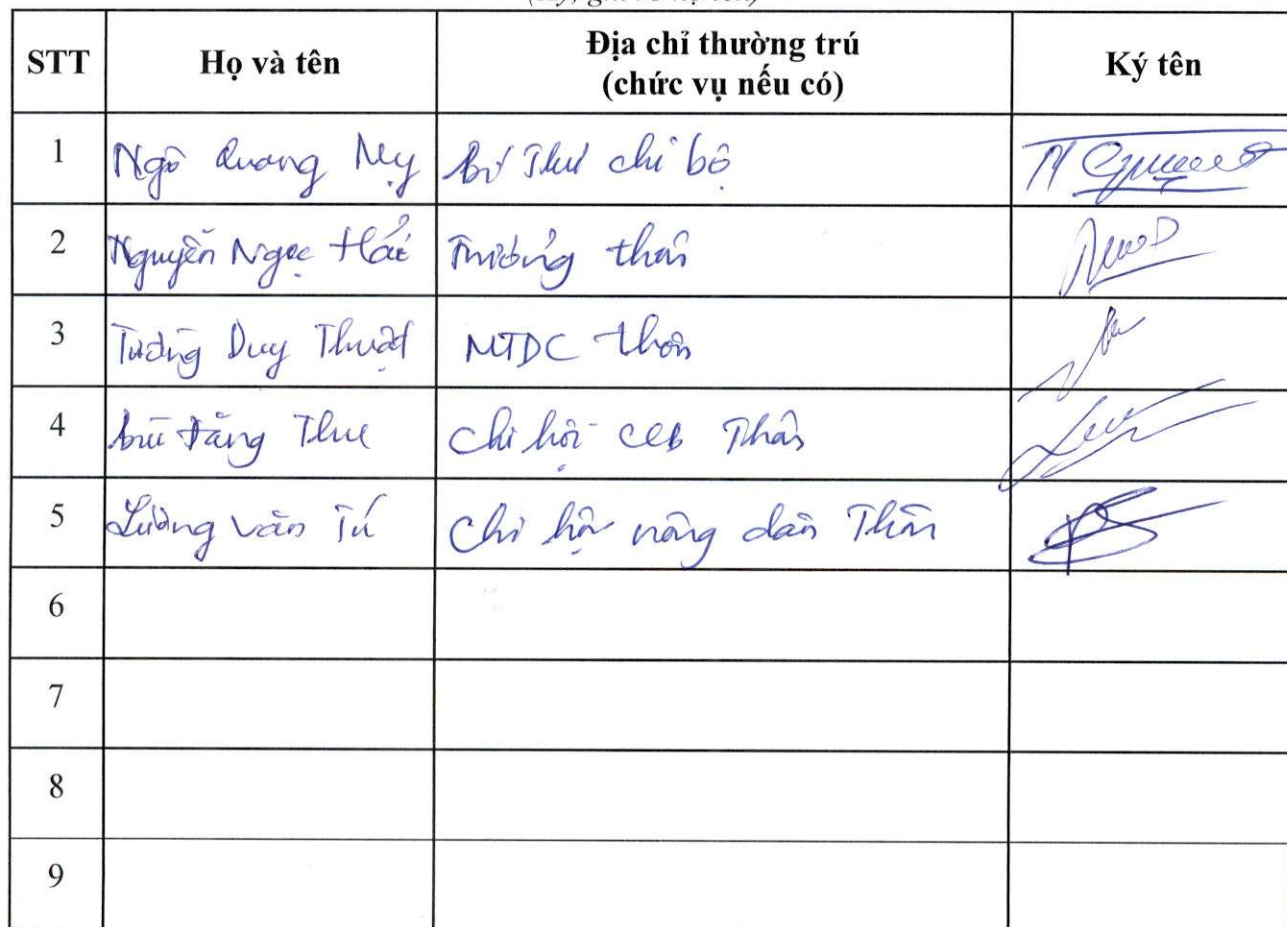 (Ký, ghi rõ họ tên)
STT Họ và tên Địa chỉ thường trú (chức vụ nếu có) Ký tên
1 Ngô Quang Mỵ Bí Thư chi bộ
2 Nguyễn Ngọc Hải Trưởng thôn
3 Tưởng Duy Thuật MTDC thôn
4 Bùi Đăng Thu Chi hội CCB Thôn
5 Lường Văn Tú Chi hội nông dân Thôn
6
7
8
9